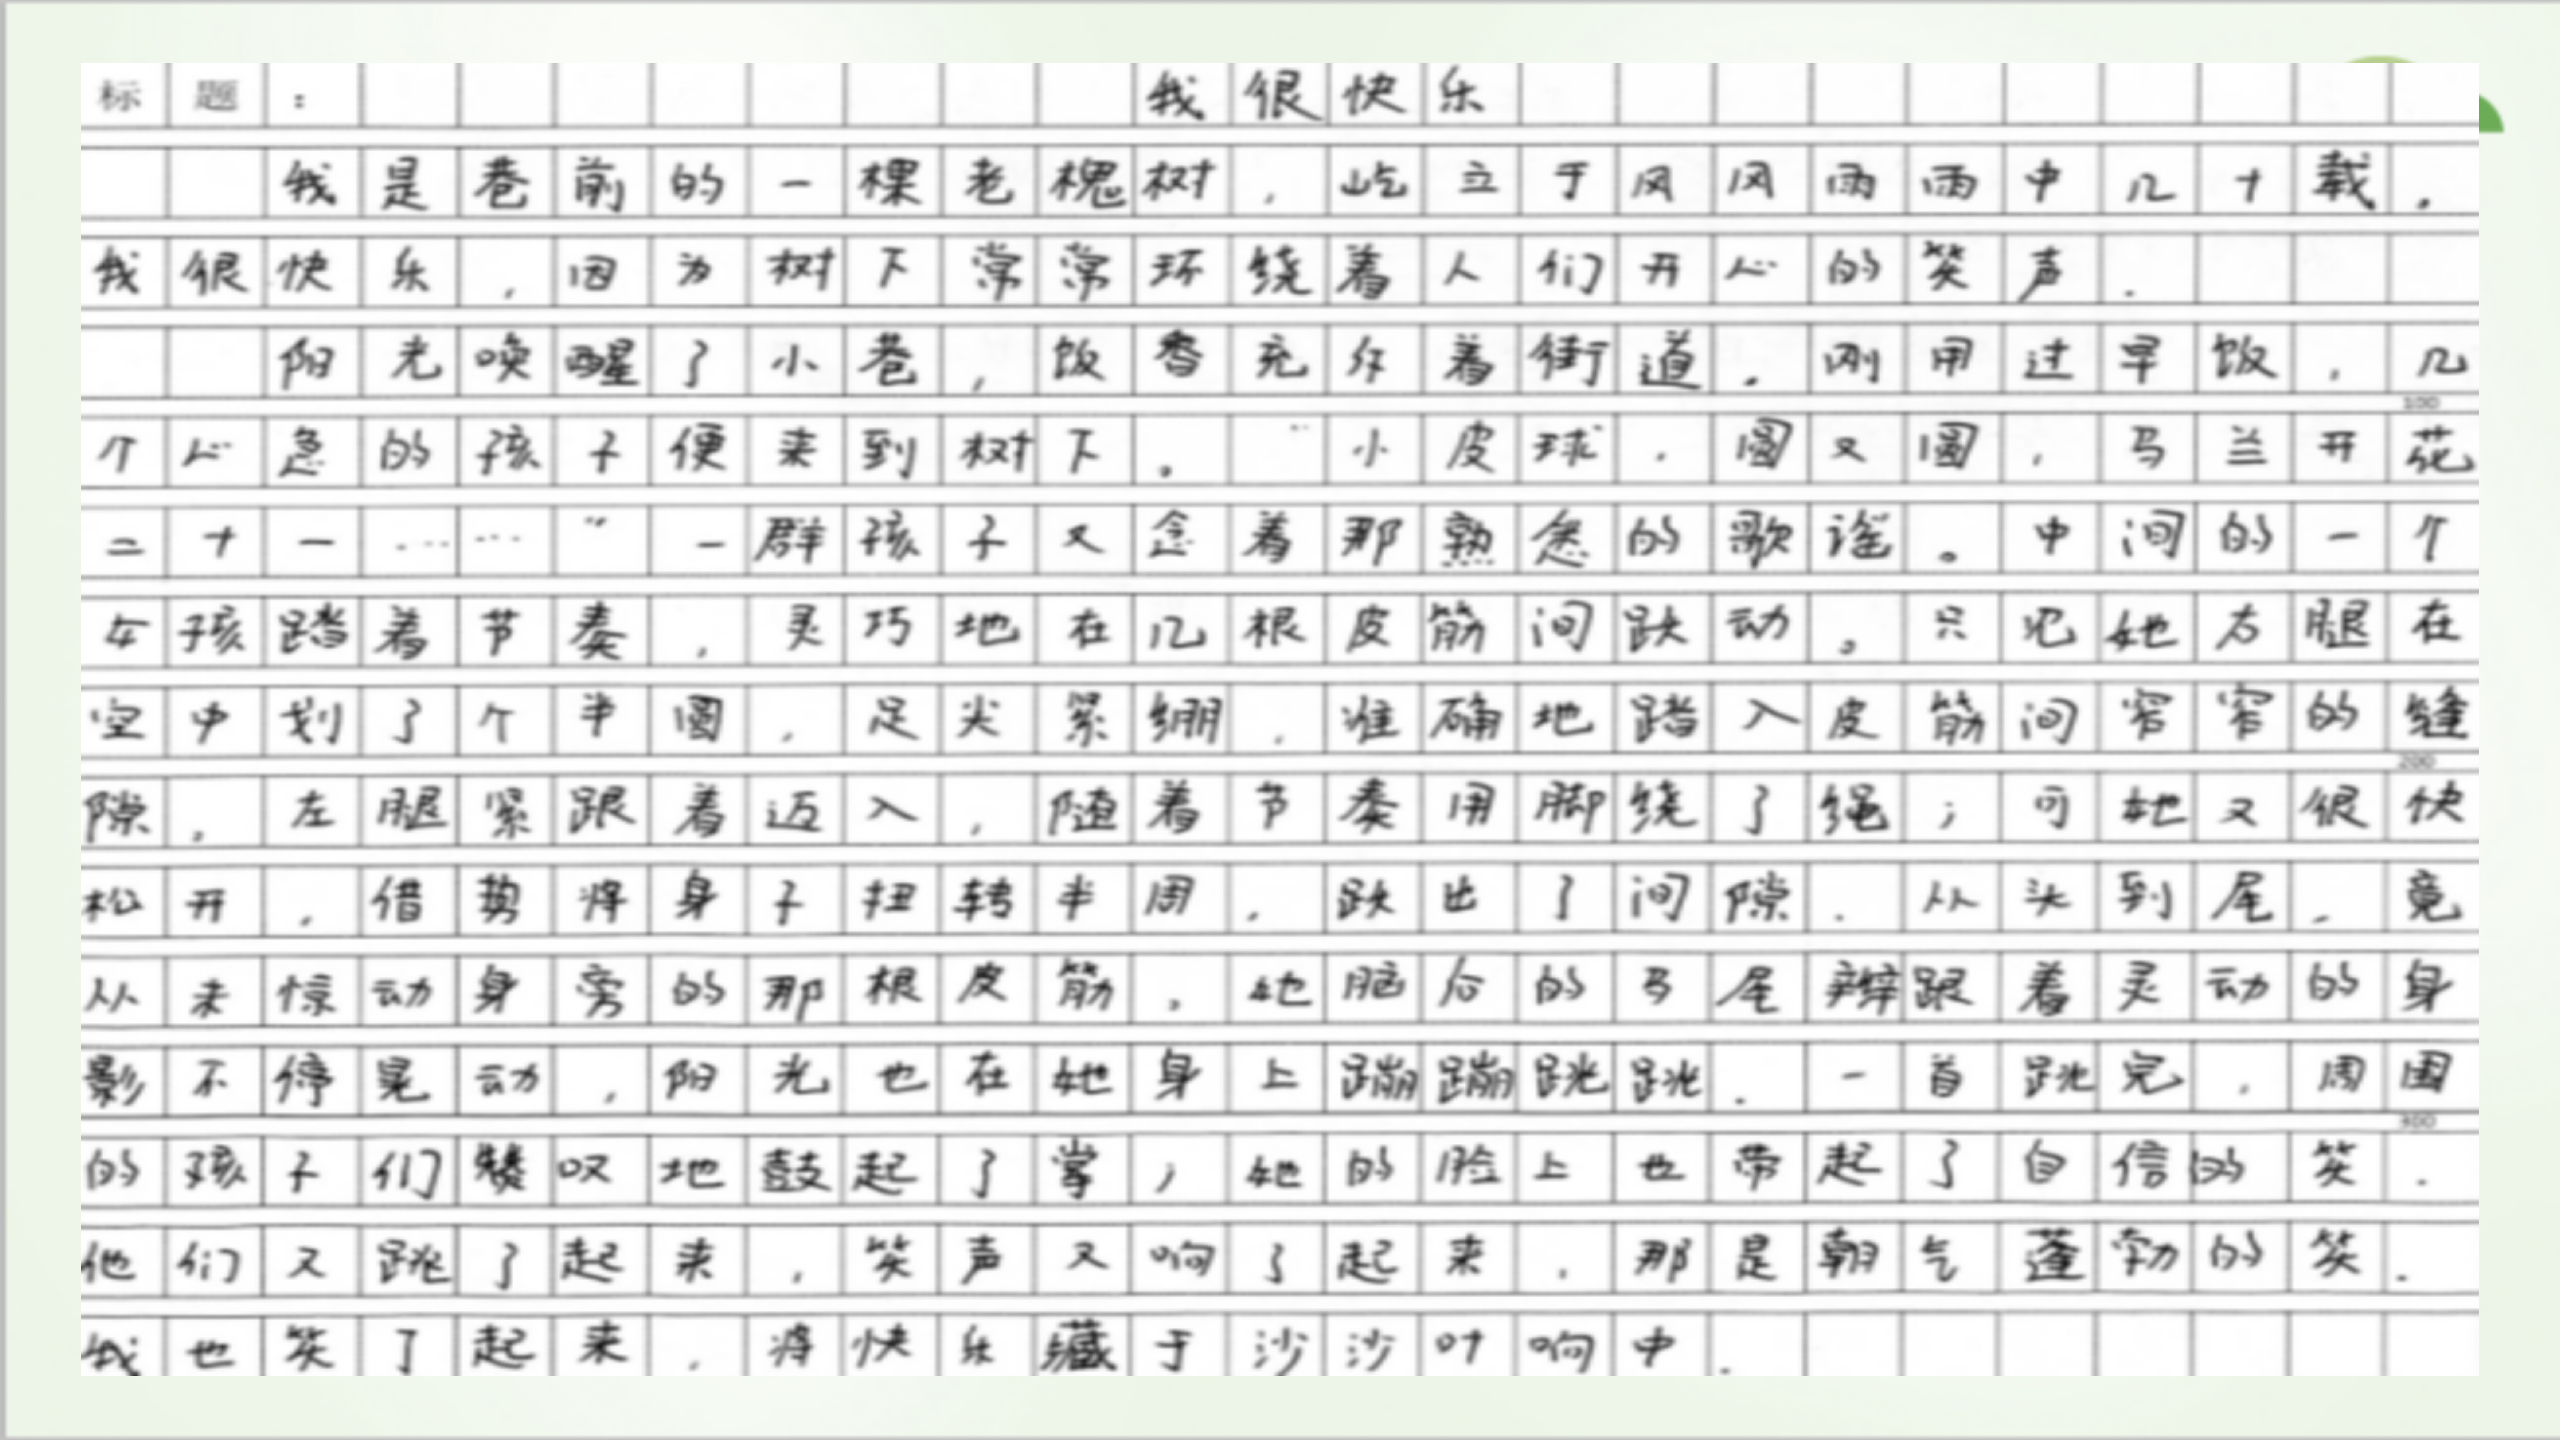 标题： 我很快乐
我是巷前的一棵老槐树，屹立于风风雨雨中几十载。
我很快乐，因为树下常常环绕着人们开心的笑声.
阳光唤醒了小巷，饭香充斥着街道。刚用过早饭，几
100
个心急的孩子便来到树下。“小皮球，圆又圆，马兰开花
二十一……”一群孩子又念着那熟悉的歌谣。中间的一个
女孩踏着节奏，灵巧地在几根皮筋间跃动。只见她右腿在
空中划了个半圆，足尖紧绷，准确地踏入皮筋间窄窄的缝
200
隙。左腿紧跟着迈入，随着节奏用脚绕了绳；可她又很快
松开，借势将身子扭转半周，跃出了间隙.从头到尾，竟
从未惊动身旁的那根皮筋。她脑后的马尾辫跟着灵动的身
影不停晃动，阳光也在她身上蹦蹦跳跳.一首跳完，周围
300
的孩子们赞叹地鼓起了掌，她的脸上也带起了自信的笑.
他们又跳了起来，笑声又响了起来，那是朝气蓬勃的笑.
我也笑了起来，将快乐藏于沙沙叶响中.